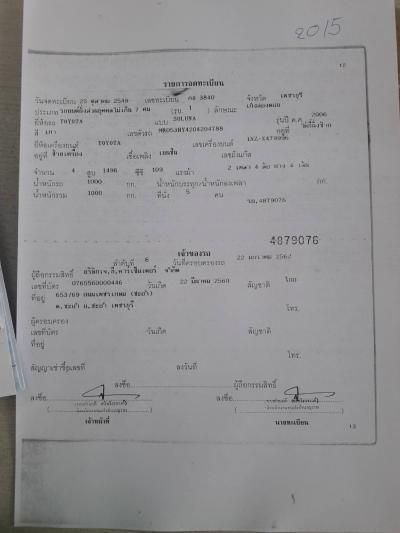 2015
12
รายการจดทะเบียน
วันจดทะเบียน 25 ตุลาคม 2549 เลขทะเบียน กธ 3840 จังหวัด เพชรบุรี
ประเภท รถยนต์นั่งส่วนบุคคลไม่เกิน 7 คน (รย. 1 ) ลักษณะ เก๋งสองตอน
ยี่ห้อรถ TOYOTA แบบ SOLUNA รุ่นปี ค.ศ. 2006
สี เทา เลขตัวรถ MR053HY4204204788 อยู่ที่
ยี่ห้อเครื่องยนต์ TOYOTA เลขเครื่องยนต์
อยู่ที่ เชื้อเพลิง เบนซิน เลขถังแก๊ส
จำนวน 4 สูบ 1496 ซีซี 109 แรงม้า 2 เพลา 4 ล้อ ยาง 4 เส้น
น้ำหนักรถ 1000 กก. น้ำหนักบรรทุก/น้ำหนักลงเพลา กก.
น้ำหนักรวม 1000 กก. ที่นั่ง 5 คน
4879076
4879076
เจ้าของรถ
ลำดับที่ 6 วันที่ครอบครองรถ 22 2562
ผู้ถือกรรมสิทธิ์ จำกัด
เลขที่บัตร 0765560000446 วันเกิด 22 มีนาคม 2560 สัญชาติ ไทย
ที่อยู่ 653/69 ถนนเพชรเกษม (ชะอำ) โทร.
ต.ชะอำ อ.ชะอำ เพชรบุรี
ผู้ครอบครอง
เลขที่บัตร วันเกิด สัญชาติ
ที่อยู่
โทร.
สัญญาเช่าซื้อเลขที่ ลงวันที่
ลงชื่อ ผู้ถือกรรมสิทธิ์
ลงชื่อ ลงชื่อ
เจ้าหน้าที่ นายทะเบียน
13